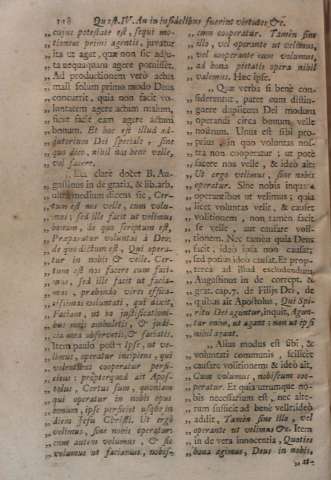 118 Quæst. IV. An in infidelibus fuerint virtutes &c.
„ cujus potestate est, sequi mo-
„ tionem primi agentis, juvatur
„ ita ut agat, quæ non sic adju-
„ ta nequaquam agere potuisset.
„ Ad productionem verò actûs
„ mali solùm primo modo Deus
„ concurrit, quia non facit vo-
„ luntatem agere actum malum
„ sicut facit eam agere actum
„ bonum. Et hoc est illud ad-
„ jutorium Dei speciale, sine
„ quo dico, nihil nos benè velle,
„ vel facere.
„ Et clarè docet B. Au-
„ gustinus in de gratia, & lib. arb.
„ ultra medium dicens sic, Cer-
„ tum est nos velle, cum volu-
„ mus; sed ille facit ut velimus
„ bonum, de quo scriptum est,
„ Præparatur voluntas à Deo;
„ de quo dictum est, Qui opera-
„ tur in nobis & velle. Cer-
„ tum est nos facere cum faci-
„ mus, sed ille facit ut facia-
„ mus, præbendo vires effica-
„ cissimas voluntati, qui dixit,
„ Faciam, ut in justificationi-
„ bus meis ambuletis, & judi-
„ cia mea observetis, & faciatis.
„ Item paulo post: Ipse, ut ve-
„ limus, operatur incipiens, qui
„ volentibus cooperatur perfi-
„ ciens: propterquod ait Apos-
„ tolus, Certus sum, quoniam
„ qui operatur in nobis opus
„ bonum, ipse perficiet usque in
„ diem Jesu Christi. Ut ergo
„ velimus, sine nobis operatur;
„ cum autem volumus, & sic
„ volumus ut faciamus, nobis-
„ cum cooperatur. Tamèn sine
„ illo, vel operante ut velimus,
„ vel cooperante cum volumus,
„ ad bona pietatis opera nihil
„ valemus. Hæc ipse.
„ Quæ verba si benè con-
„ siderentur, patet eum distin-
„ guere duplicem Dei modum
„ operandi circa bonum velle
„ nostrum. Unus est sibi pro-
„ prius, in quo voluntas nos-
„ tra non cooperatur; ut potè
„ facere nos velle, & ideò ait:
„ Ut ergo velimus, sine nobis
„ operatur. Sine nobis inquam
„ operantibus ut velimus; quia
„ licèt voluntas velit, & causet
„ volitionem, non tamèn facit
„ se velle, aut causare voli-
„ tionem. Nec tamèn quia Deus
„ facit, ideò ista non causat;
„ sed potiùs ideò causat. Et prop-
„ terea ad illud excludendum
„ Augustinus in de corrept. &
„ grat. cap. 2. de Filijs Dei, de
„ quibus ait Apostolus, Qui Spi-
„ ritu Dei aguntur, inquit, Agun-
„ tur enim, ut agant; non ut ipsi
„ nihil agant.
„ Alius modus est sibi, &
„ voluntati communis, scilicet
„ causare volitionem & ideò ait,
„ Cum volumus, nobiscum coo-
„ peratur. Et quia utrumque no-
„ bis necessarium est, nec alte-
„ rum sufficit ad benè vell
„ addit, Tamèn sine illo, vel
„ operante ut velimus &c. Item
„ in de vera innocentia, Quoties
„ bona agimus, Deus in nobis,